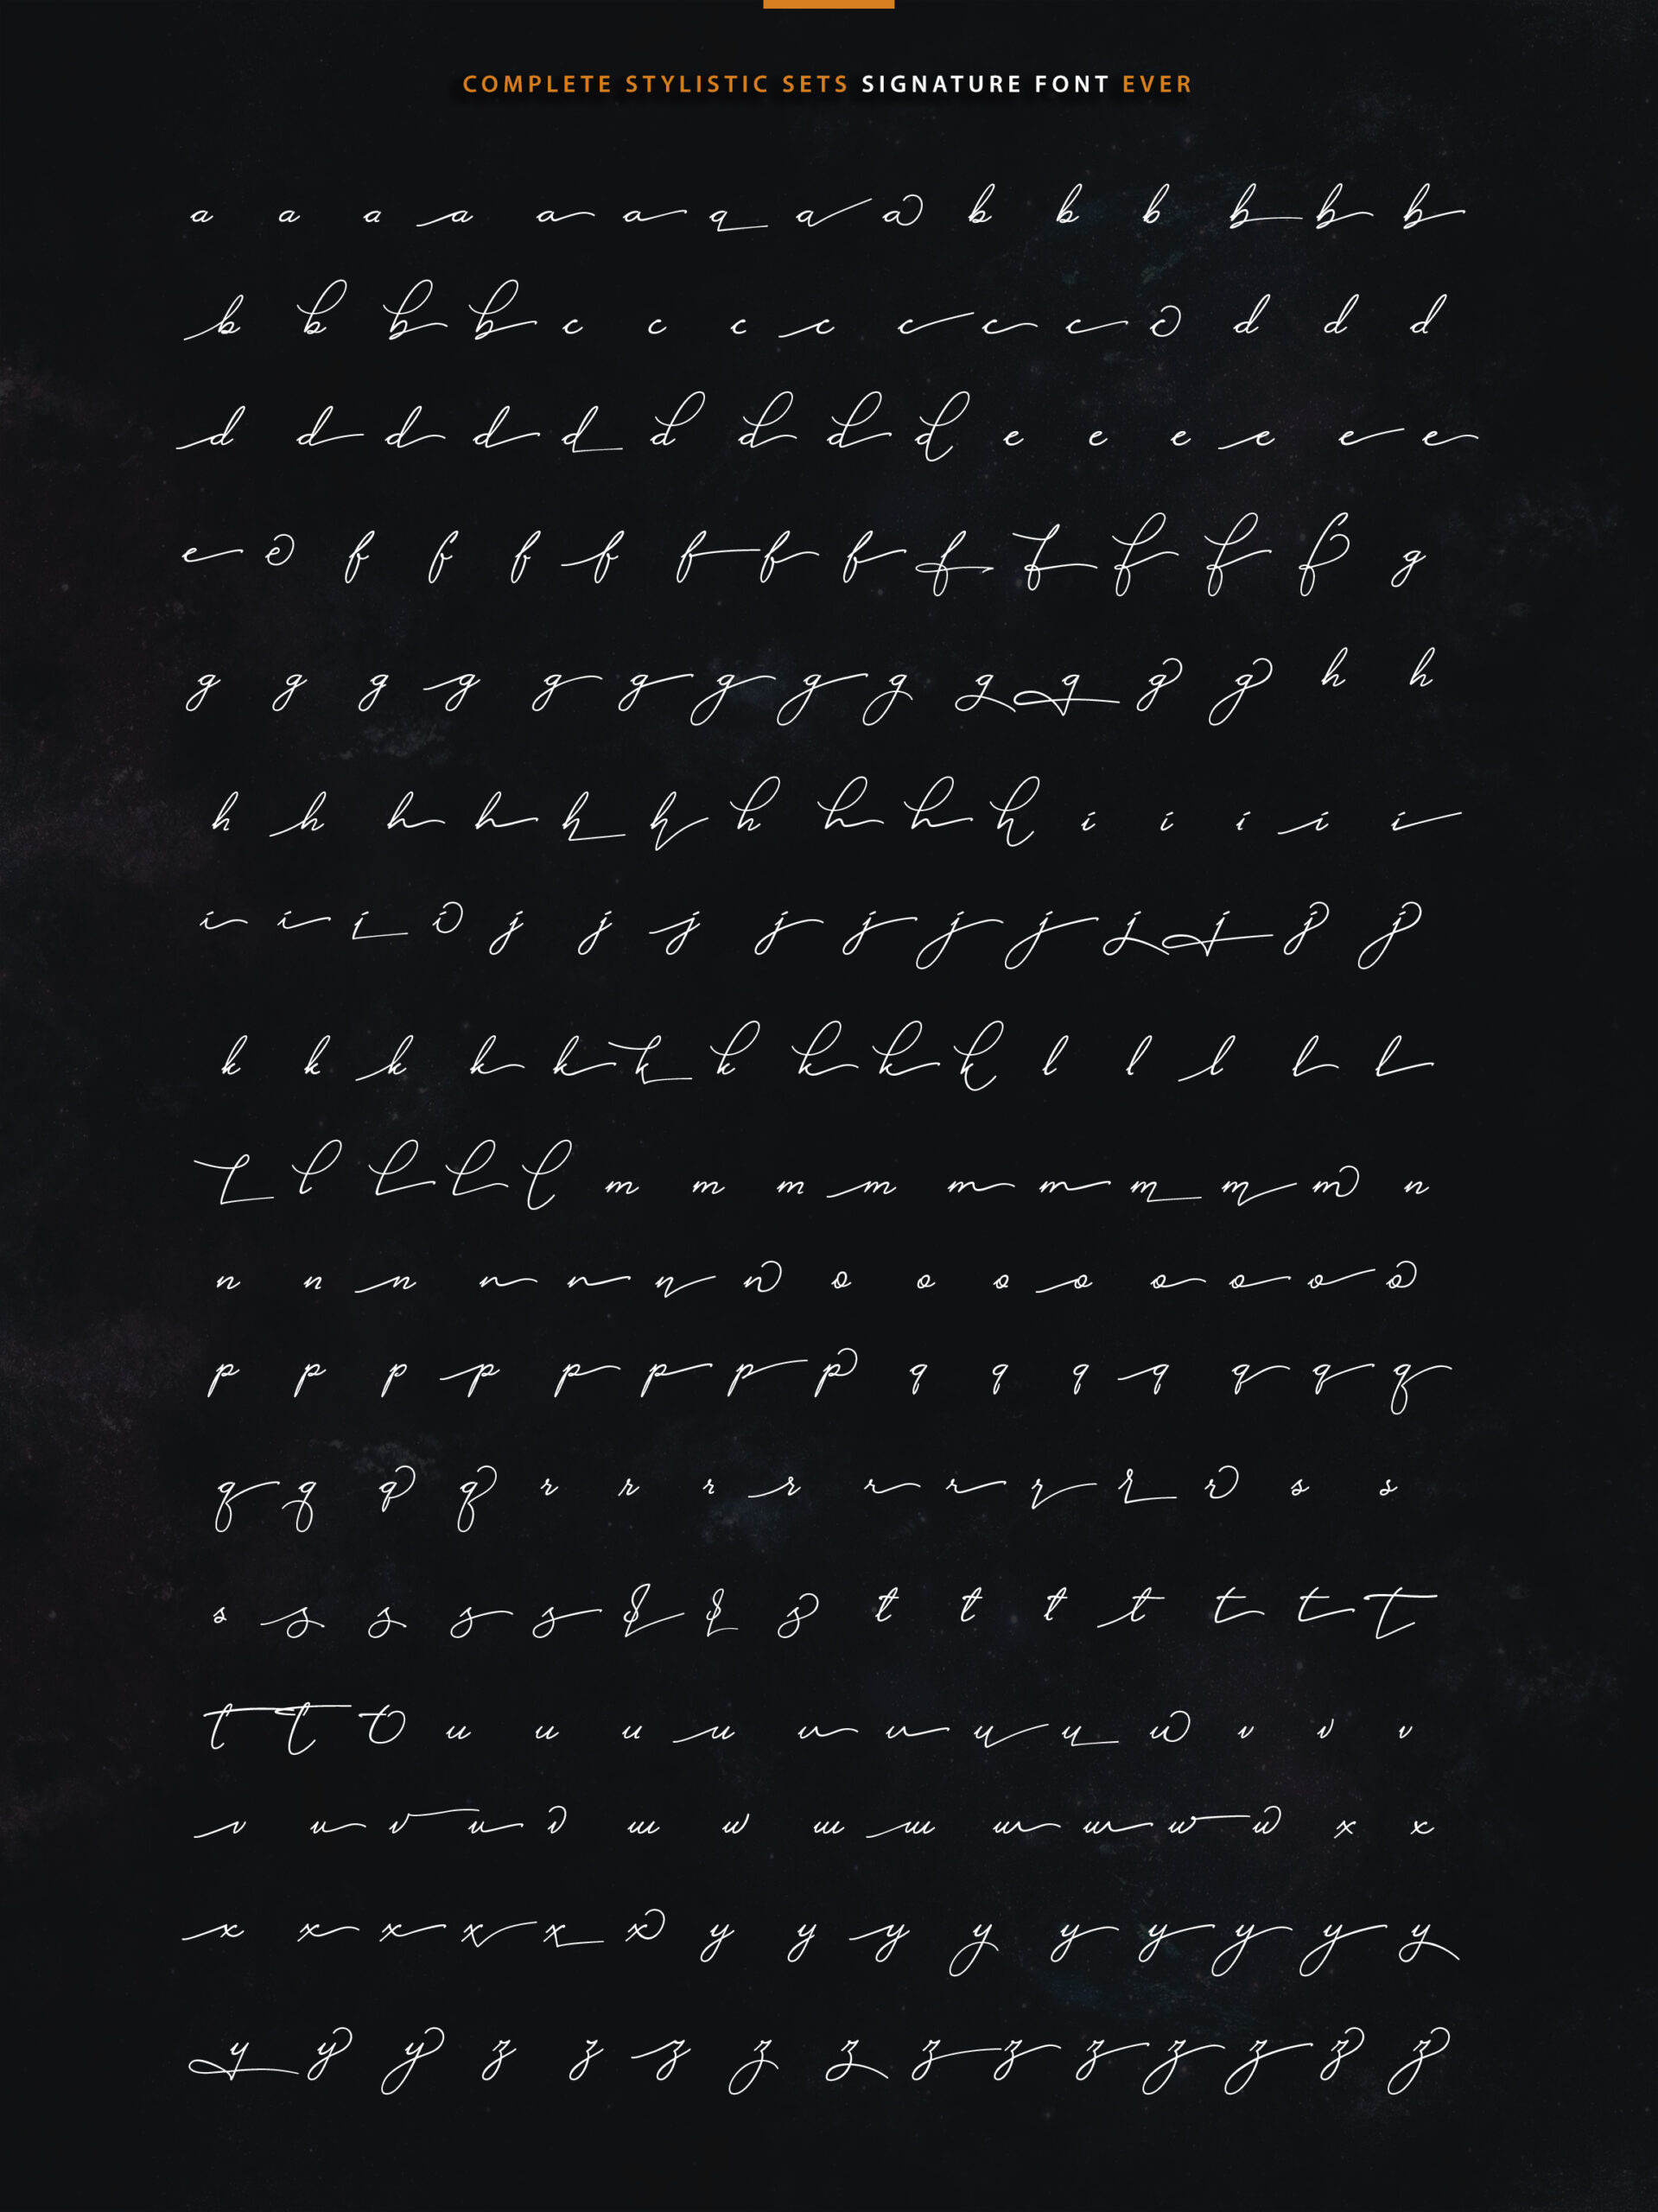 COMPLETE STYLISTIC SETS SIGNATURE FONT EVER
a a a a a a a a a b b b b b b
b b b b c c c c c c c c d d d
d d d d d d d d d e e e e e e
e e f f f f f f f f f f f f g
g g g g g g g g g g g g g h h
h h h h h h h h h h i i i i i
i i i i j j j j j j j j j j j
k k k k k k k k k k l l l l l
l l l l l m m m m m m m m m n
n n n n n n n o o o o o o o o
p p p p p p p p q q q q q q q
q q q q r r r r r r r r r s s
s s s s s s s s t t t t t t t
t t t u u u u u u u u u v v v
v v v v v w w w w w w w w x x
x x x x x x y y y y y y y y y
y y y z z z z z z z z z z z z